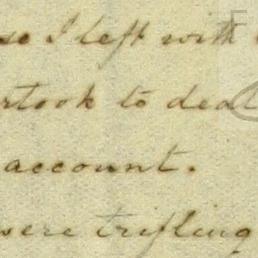 I left with
to deal
account.
were trifling